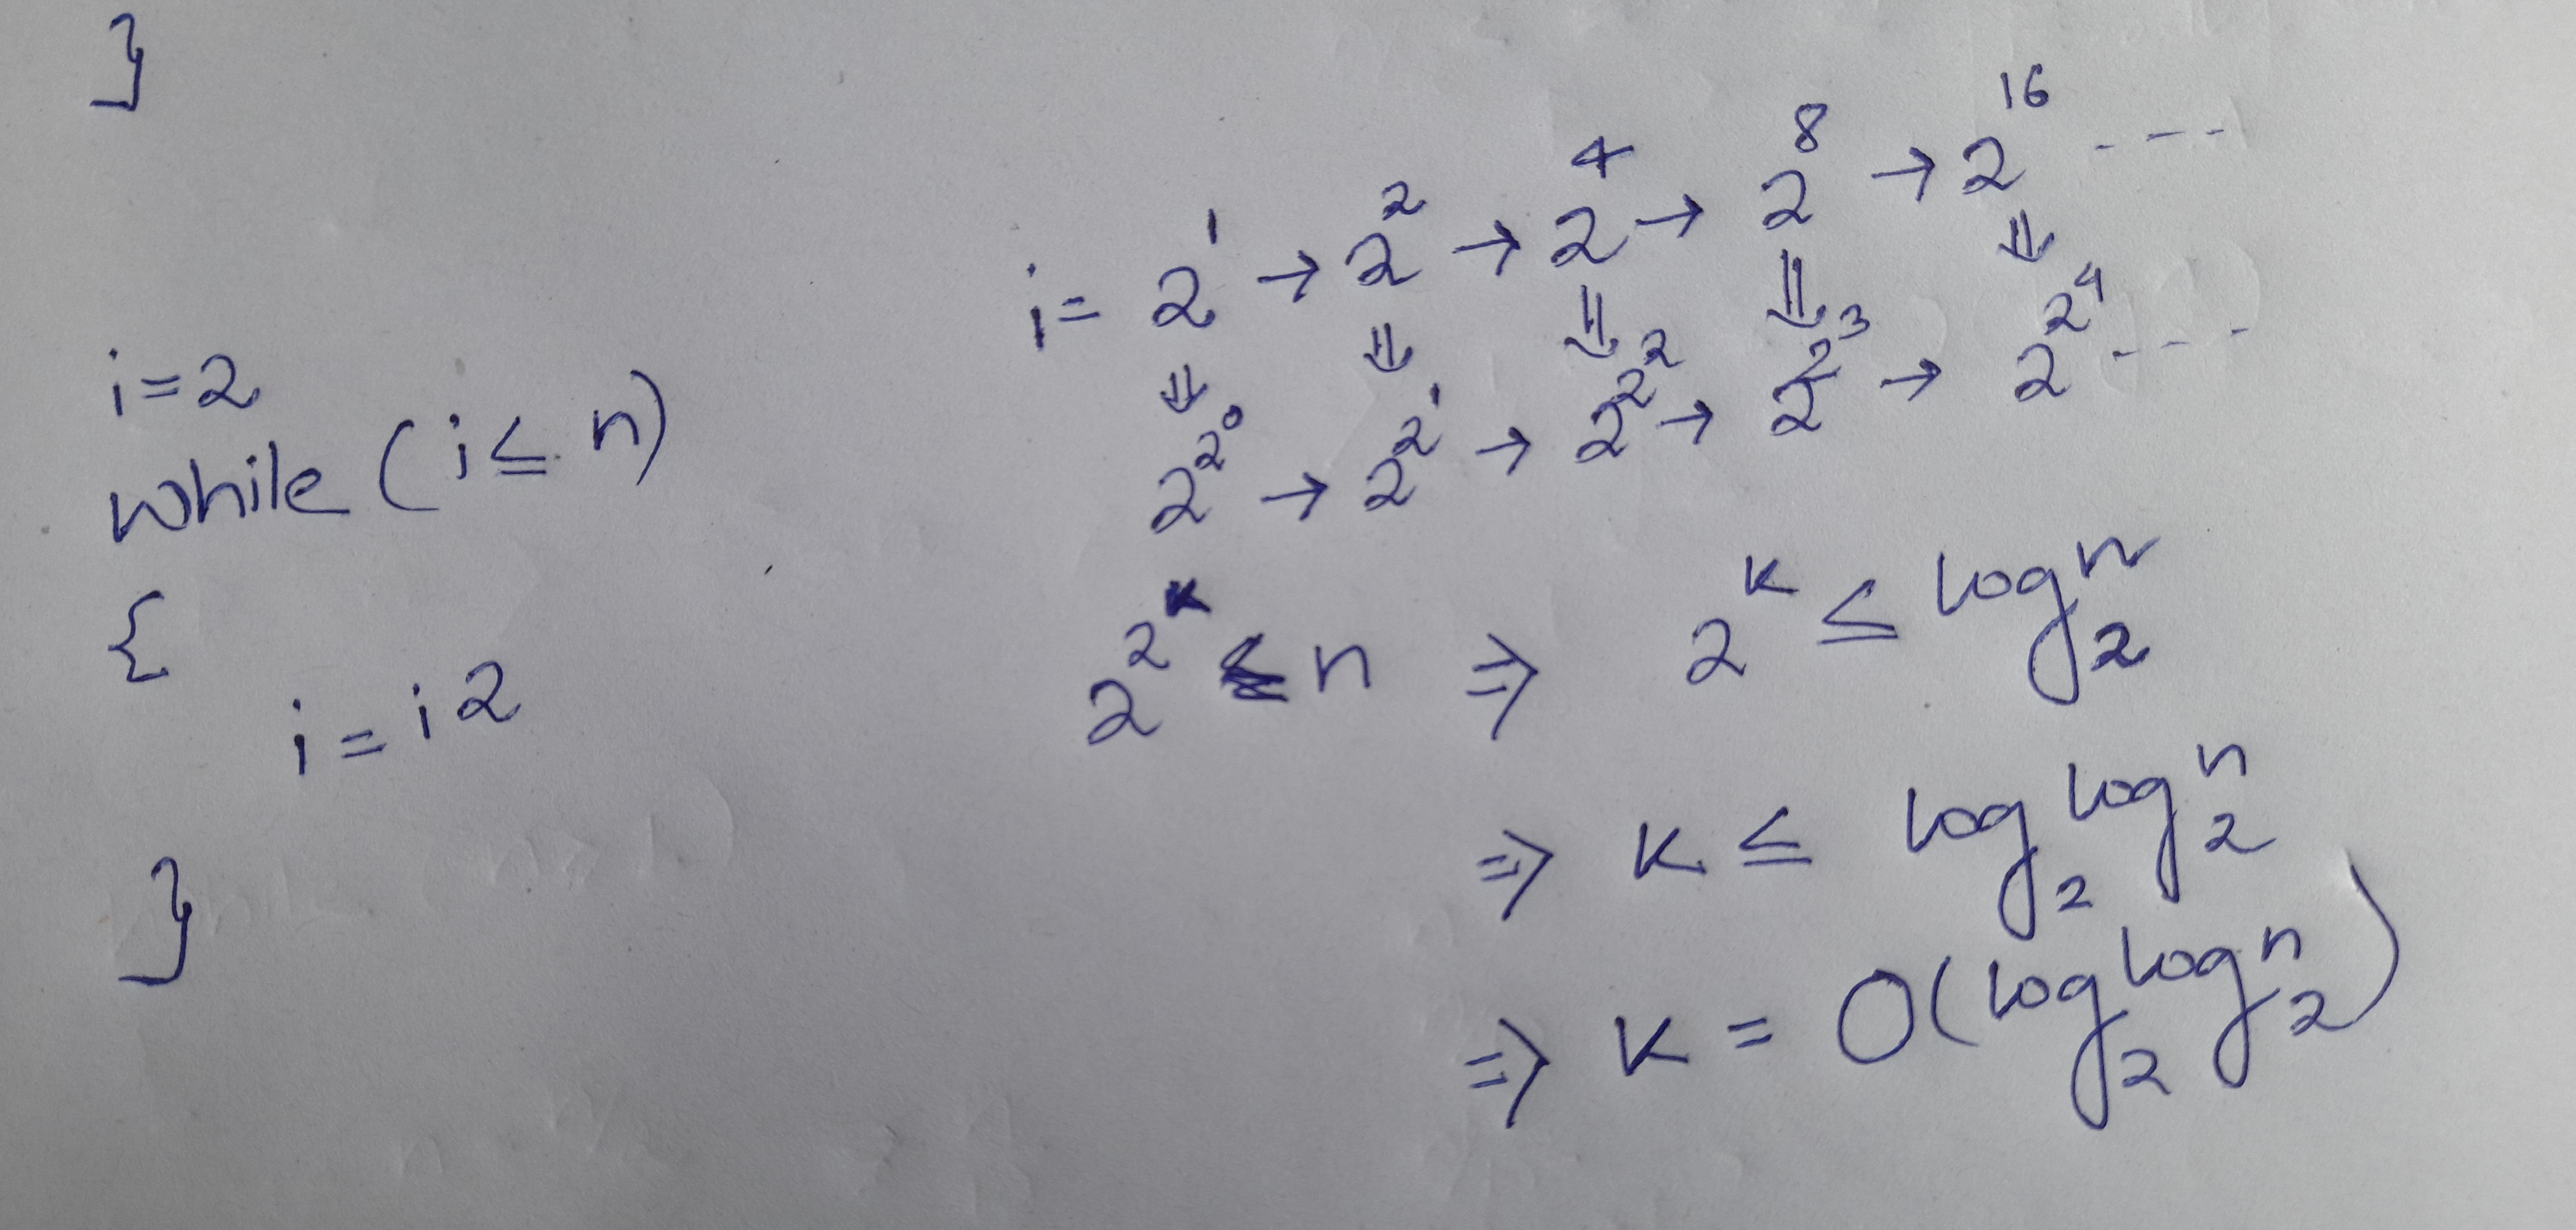 }
i = 2
while (i ≤ n)
{
i = i²
}
i = 2¹ → 2² → 2⁴ → 2⁸ → 2¹⁶ ----
⇓ ⇓ ⇓ ⇓ ⇓
2^2^0 → 2^2^1 → 2^2^2 → 2^2^3 → 2^2^4 ----
2^2^k ≤ n ⇒ 2^k ≤ log₂ n
⇒ k ≤ log₂ log₂ n
⇒ k = O(log₂ log₂ n)